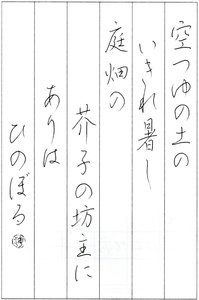 空つゆの土の
いきれ暑し
庭畑の
芥子の坊主に
ありは
ひのぼる